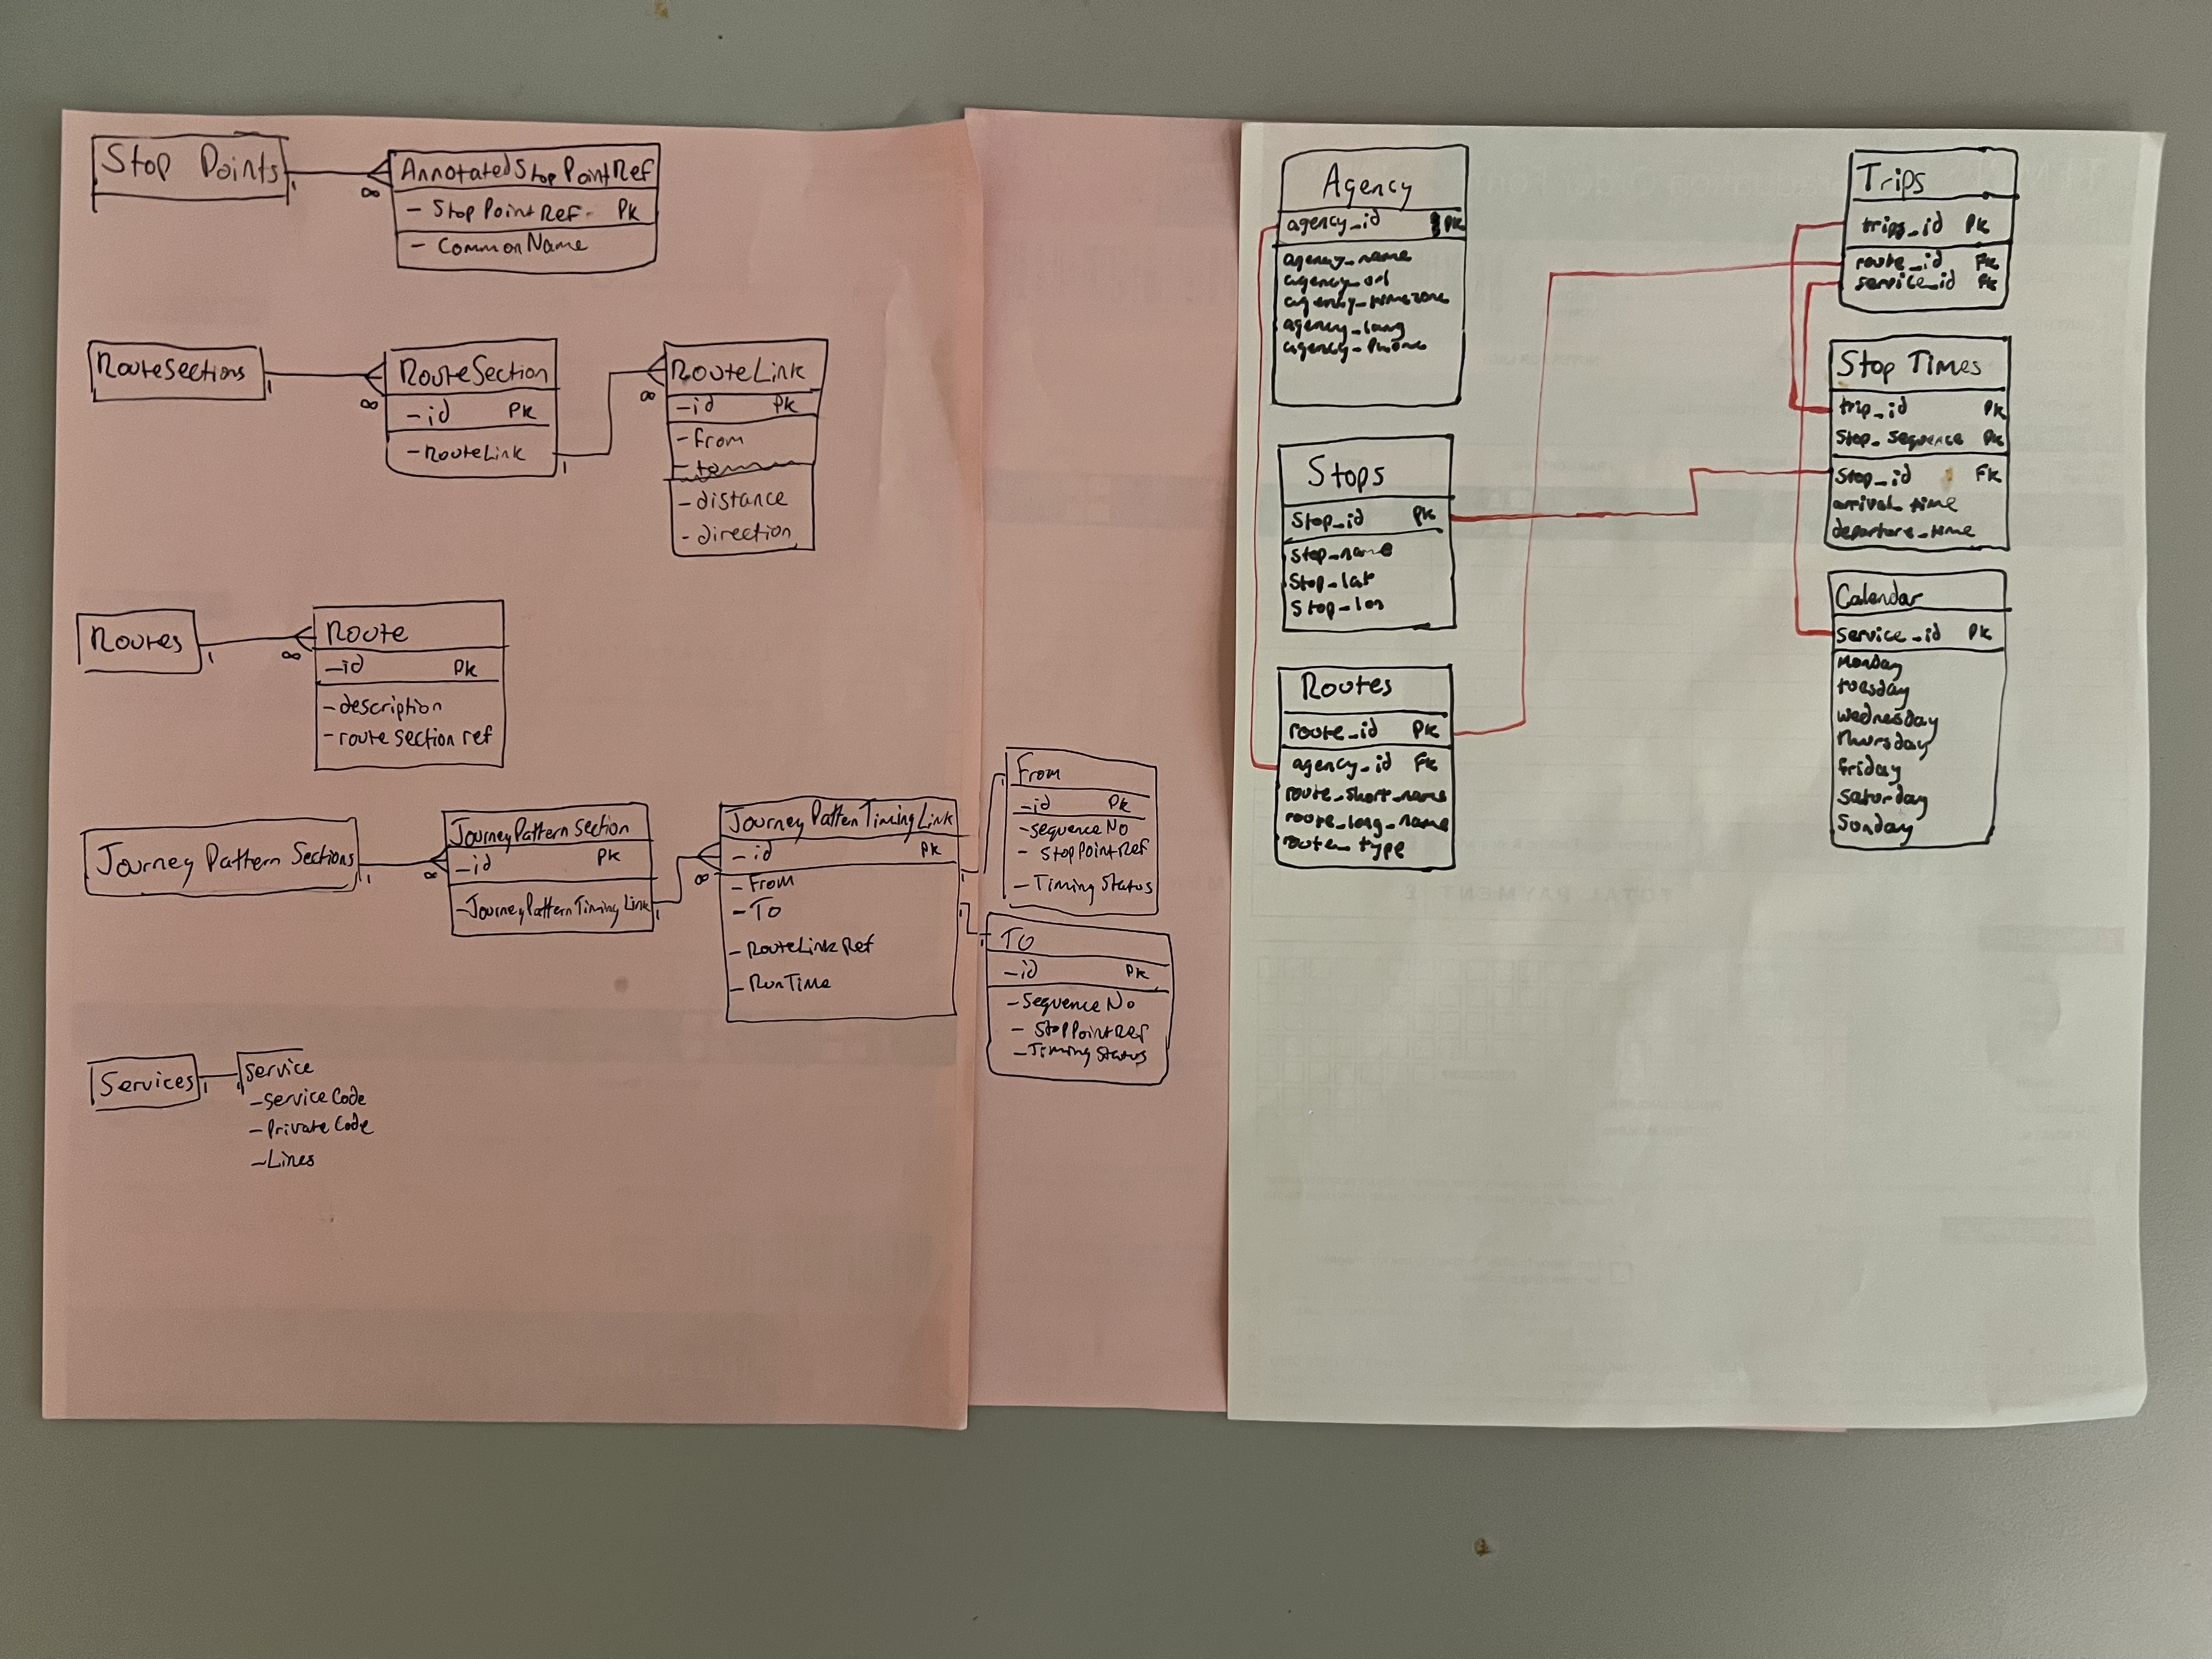 Stop Points
1
∞
AnnotatedStopPointRef
- StopPointRef PK
- CommonName
RouteSections
1
∞
RouteSection
- id PK
- RouteLink
1
∞
RouteLink
- id PK
- From
- distance
- direction
Routes
1
∞
Route
- id PK
- description
- route section ref
Journey Pattern Sections
1
∞
JourneyPattern Section
- id PK
- JourneyPatternTimingLink
1
∞
JourneyPatten TimingLink
- id PK
- From
- To
- RouteLinkRef
- RunTime
1
1
From
- id PK
- sequence No
- StopPointRef
- Timing Status
1
1
To
- id PK
- Sequence No
- StopPointRef
- Timing Status
Services
1
1
Service
- Service Code
- Private Code
- Lines
Agency
agency_id PK
agency_name
agency_url
agency_timezone
agency_lang
agency_phone
Stops
Stop_id PK
Stop_name
Stop_lat
Stop_lon
Routes
route_id PK
agency_id FK
route_short_name
route_long_name
route_type
Trips
trips_id PK
route_id FK
service_id FK
Stop Times
trip_id PK
Stop_sequence PK
Stop_id FK
arrival_time
departure_time
Calendar
service_id PK
Monday
tuesday
wednesday
thursday
friday
saturday
Sunday